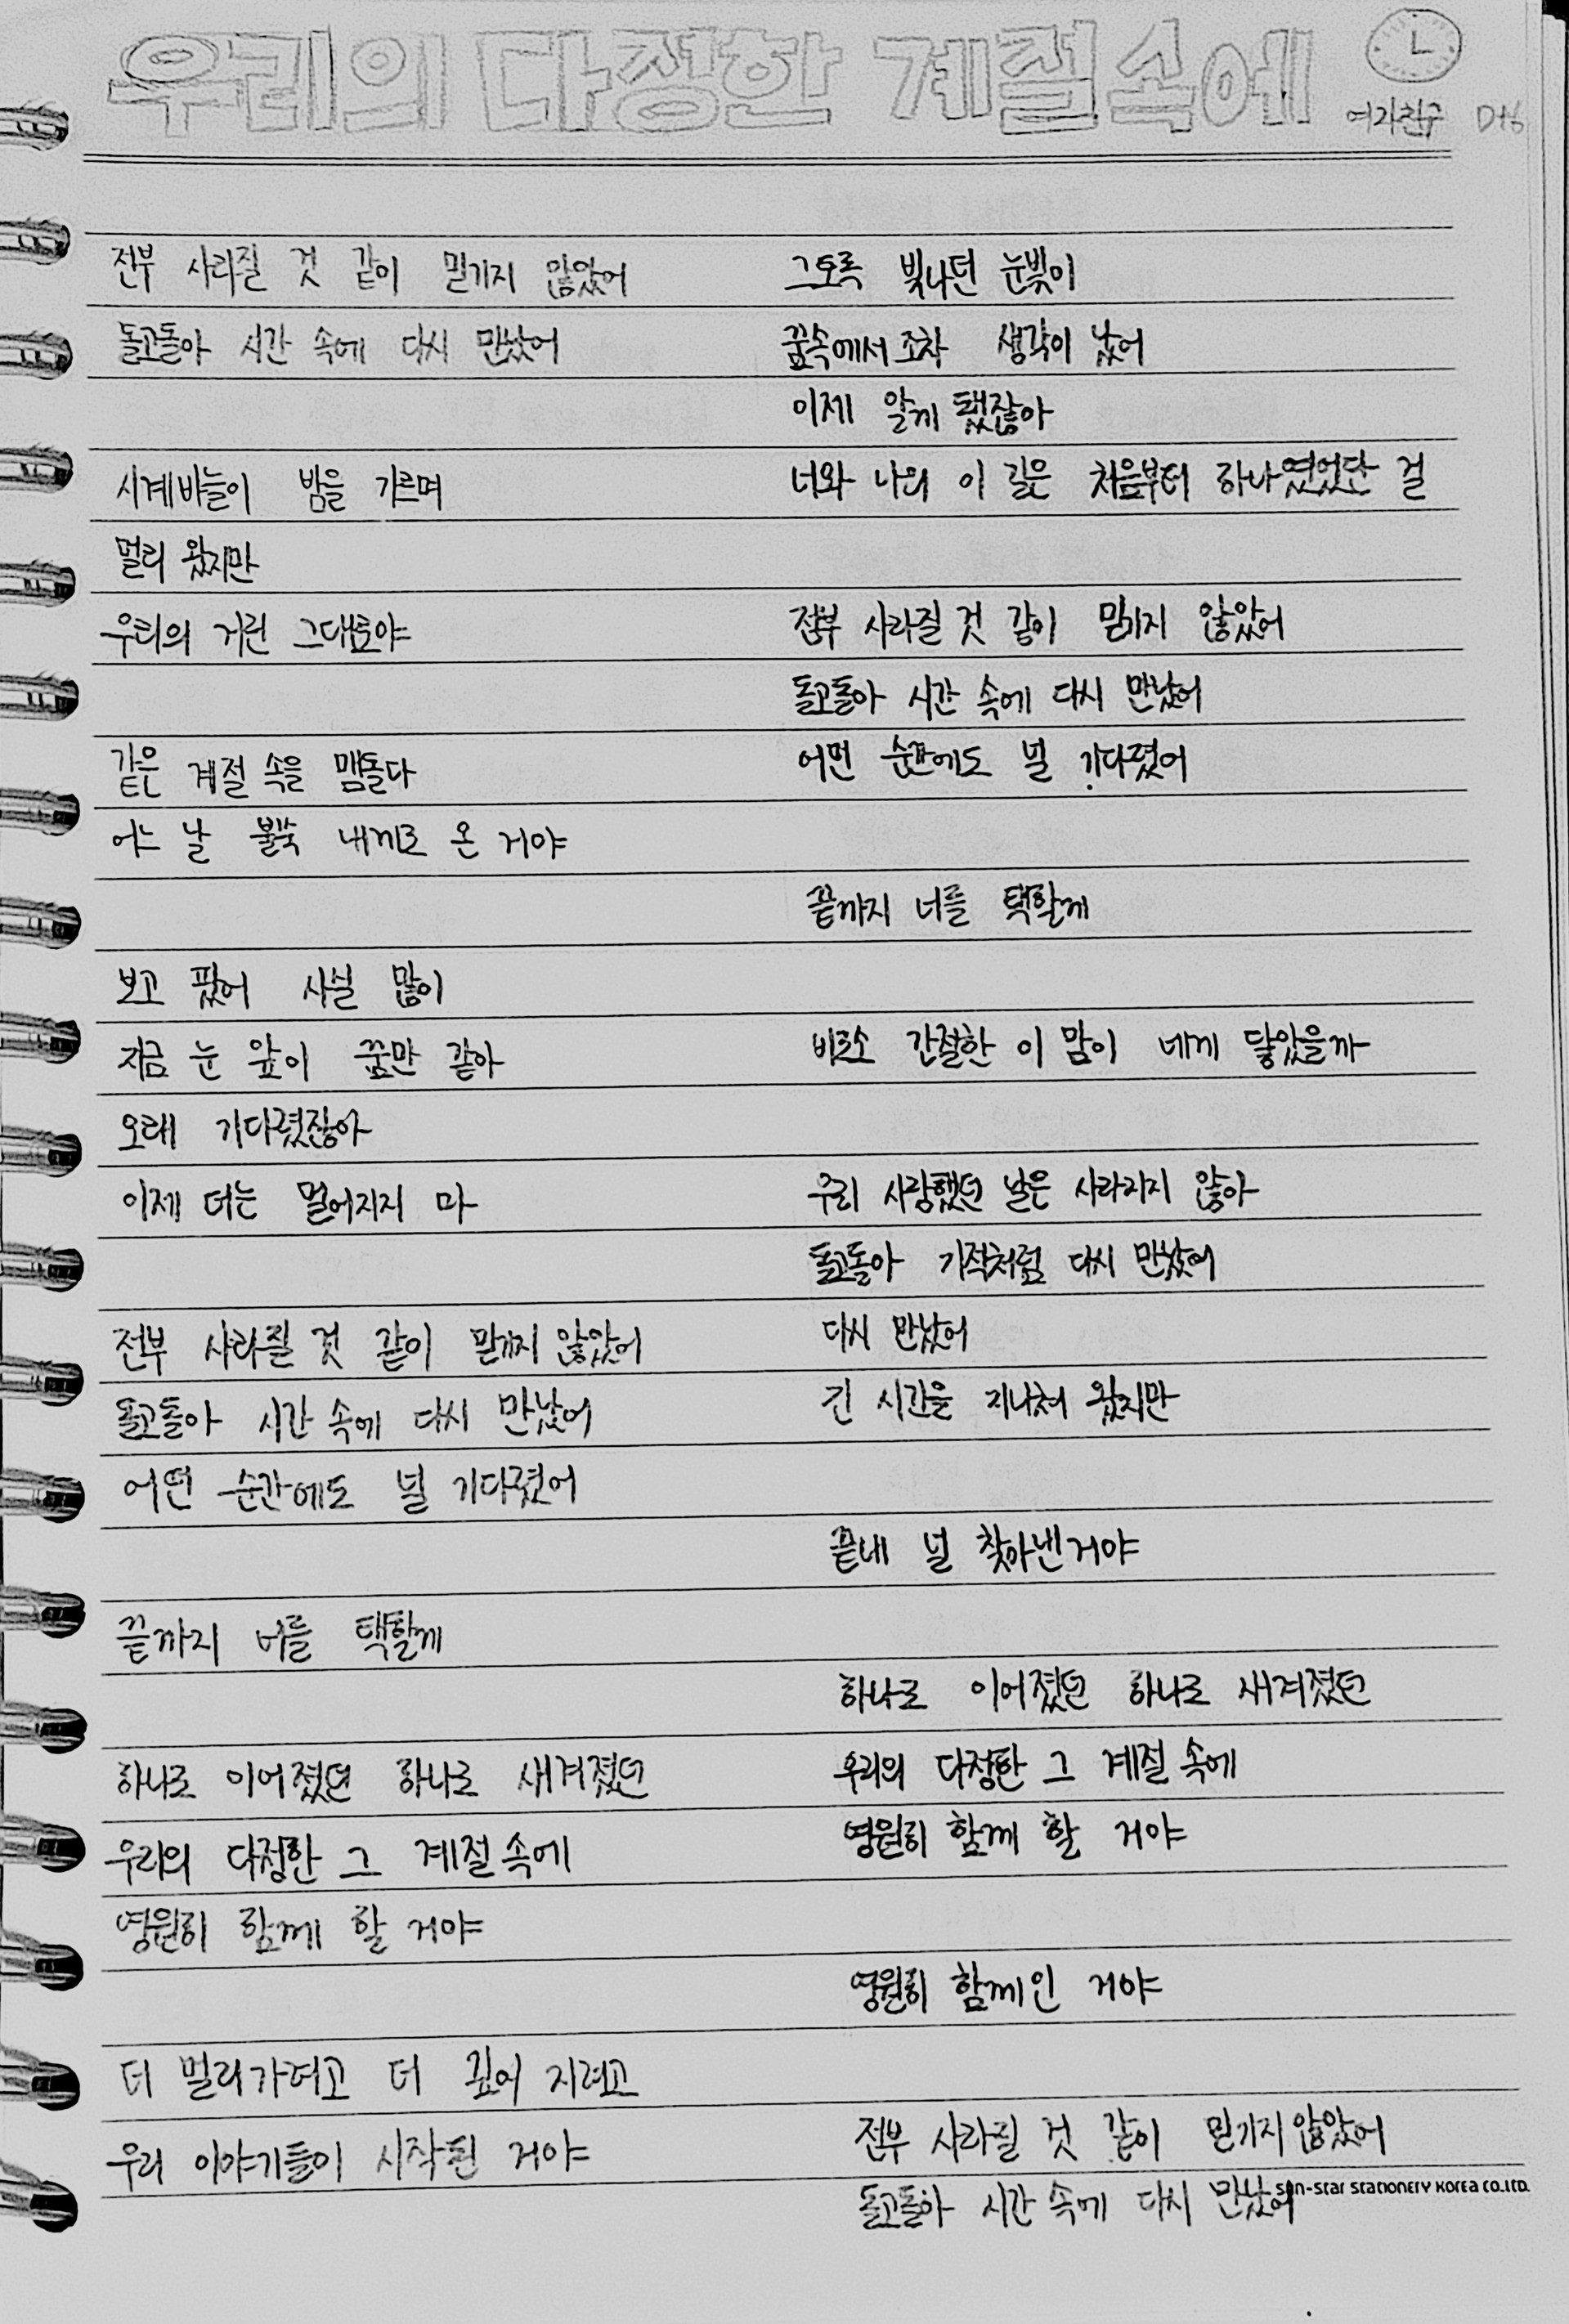 우리의 다정한 계절 속에
여자친구 D+6
전부 사라질 것 같이 믿기지 않았어
돌고돌아 시간 속에 다시 만났어
시계바늘이 밤을 가르며
멀리 왔지만
우리의 거린 그대로야
같은 계절 속을 맴돌다
어느 날 불쑥 내게로 온 거야
보고 팠어 사실 많이
지금 눈 앞이 꿈만 같아
오래 기다렸잖아
이제 더는 멀어지지 마
전부 사라질 것 같이 믿기지 않았어
돌고돌아 시간 속에 다시 만났어
어떤 순간에도 널 기다렸어
끝까지 너를 택할게
하나로 이어졌던 하나로 새겨졌던
우리의 다정한 그 계절 속에
영원히 함께 할 거야
더 멀리가려고 더 깊어 지려고
우리 이야기들이 시작된 거야
그토록 빛나던 눈빛이
꿈속에서조차 생각이 났어
이제 알게 됐잖아
너와 나의 이 길은 처음부터 하나였었단 걸
전부 사라질 것 같이 믿기지 않았어
돌고돌아 시간 속에 다시 만났어
어떤 순간에도 널 기다렸어
끝까지 너를 택할게
비로소 간절한 이 맘이 네게 닿았을까
우리 사랑했던 날은 사라지지 않아
돌고돌아 기적처럼 다시 만났어
다시 만났어
긴 시간을 지나쳐 왔지만
끝내 널 찾아낸거야
하나로 이어졌던 하나로 새겨졌던
우리의 다정한 그 계절 속에
영원히 함께 할 거야
영원히 함께인 거야
전부 사라질 것 같이 믿기지 않았어
돌고돌아 시간 속에 다시 만났어
sun-star stationery korea co.,ltd.